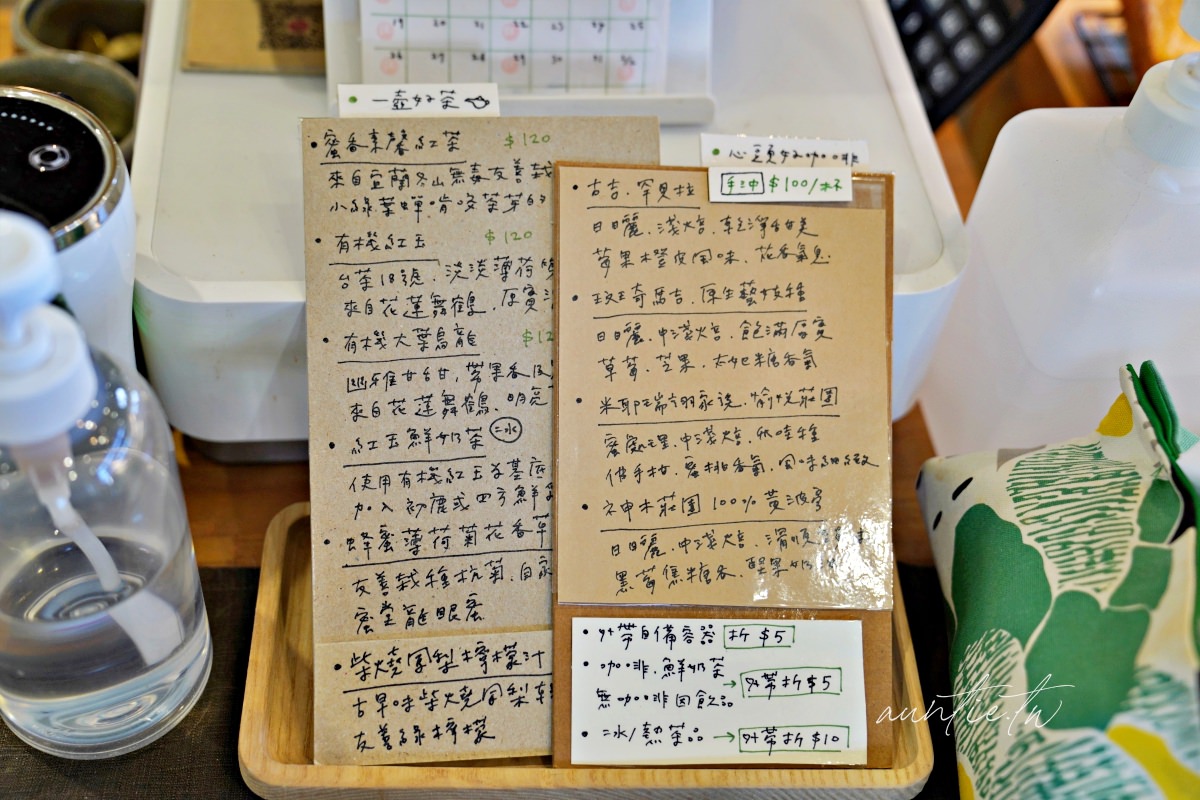 19 20 21 22 23 24 25
26 27 28 29 30 31
一壺好茶
蜜香素馨紅茶 $120
來自宜蘭冬山無毒友善栽
小綠葉蟬啃咬茶芽的
有機紅玉 $120
台茶18號、淡淡薄荷
來自花蓮舞鶴、厚實
有機大葉烏龍 $12
幽雅甘甜、帶果香
來自花蓮舞鶴、明亮
紅玉鮮奶茶 冰
使用有機紅玉為基底
加入初鹿或四方鮮
蜂蜜薄荷菊花香草
友善栽種杭菊、自家
蜜堂龍眼蜜
柴燒鳳梨檸檬汁
古早味柴燒鳳梨
友善綠檸檬
心頭好咖啡
手沖 $100/杯
古吉．罕貝拉
日曬．淺焙．乾淨甜美
莓果橙皮風味．花香氣息
衣索比亞．原生藝妓種
日曬．中淺焙．飽滿厚實
草莓．芒果．太妃糖香氣
米耶瑞朗家族．愉悅莊園
蜜處理．中淺焙．
佛手柑．蜜桃香氣．風味細緻
神木莊園 100% 黃波旁
日曬．中淺焙．滑順
黑莓焦糖香．堅果奶
外帶自備容器 折$5
咖啡．鮮奶茶
無咖啡因飲品 → 外帶折$5
冰/熱茶品 → 外帶折$10
auntie.tw